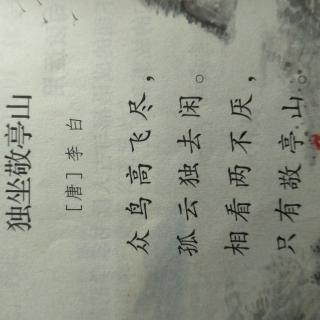 独坐敬亭山
［唐］李白
众鸟高飞尽，
孤云独去闲。
相看两不厌，
只有敬亭山。